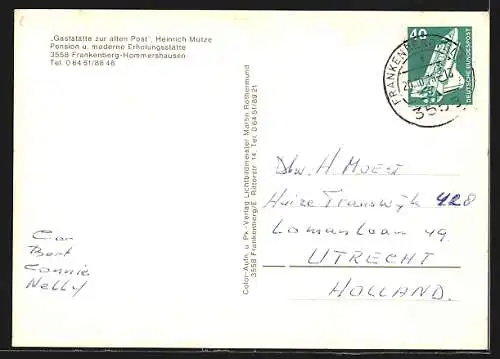 „Gaststätte zur alten Post", Heinrich Mütze
Pension u. moderne Erholungsstätte
3558 Frankenberg-Hommershausen
Tel. 0 64 51/88 46
Color-Aufn. u. Pk.-Verlag Lichtbildmeister Martin Rothermund
3558 Frankenberg/E. Ritterstr. 14 Tel. 0 64 51/89 21
40
DEUTSCHE BUNDESPOST
FRANKENBERG
H Moest
Huize Transwyk 428
Lomanlaan 49
UTRECHT
HOLLAND.
Cor
Bert
Connie
Nelly